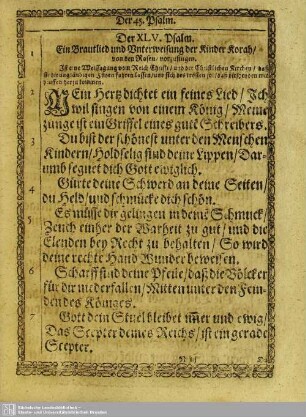 Der 45. Psalm.
Der XLV. Psalm.
Ein Brautlied vnd Vnterweisung der Kinder Korah/
von den Rosen/ vorzusingen.
1 MEin Hertz dichtet ein feines Lied/ Jch
wil singen von einem König/ Meine
zunge ist ein Griffel eines gutē Schreibers.
2 Du bist der schönest vnter den Menschen
Kindern/ Holdselig sind deine Lippen/ Dar-
umb segnet dich Gott ewiglich.
3 Gürte deine Schwerd an deine Seiten/
du Held/ vnd schmücke dich schön.
4 Es müsse dir gelingen in deinē Schmuck/
Zeuch einher der Warheit zu gut/ vnd die
Elenden bey Recht zu behalten/ So wird
deine rechte Hand Wunder beweisen.
Scharff sind deine Pfeile/ daß die Völcker
für dir niederfallen/ Mitten vnter den Fein-
den des Königes.
7 Gott dein Stuel bleibet im̄er vnd ewig/
Das Scepter deines Reichs/ ist ein gerade
Scepter.